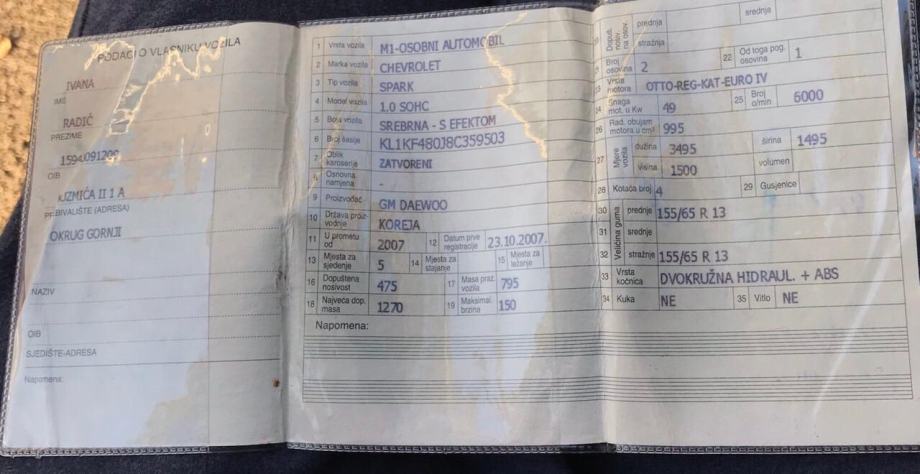 PODACI O VLASNIKU VOZILA
IVANA
IME
RADIĆ
PREZIME
OIB
II 1 A
PREBIVALIŠTE (ADRESA)
OKRUG GORNJI
NAZIV
OIB
SJEDIŠTE-ADRESA
Napomena:
1 Vrsta vozila M1-OSOBNI AUTOMOBIL
2 Marka vozila CHEVROLET
3 Tip vozila SPARK
4 Model vozila 1.0 SOHC
5 Boja vozila SREBRNA - S EFEKTOM
6 Broj šasije KL1KF480J8C359503
7 Oblik karoserije ZATVORENI
8 Osnovna namjena -
9 Proizvođač GM DAEWOO
10 Država proizvodnje KOREJA
11 U prometu od 2007 12 Datum prve registracije 23.10.2007.
13 Mjesta za sjedenje 5 14 Mjesta za stajanje 15 Mjesta za ležanje
16 Dopuštena nosivost 475 17 Masa praz. vozila 795
18 Najveća dop. masa 1270 19 Maksimal. brzina 150
Napomena:
20 Dopušt. nosiv. na osov. prednja srednja
stražnja
21 Broj osovina 2 22 Od toga pog. osovina 1
23 Vrsta motora OTTO-REG-KAT-EURO IV
24 Snaga mot. u Kw 49 25 Broj o/min 6000
26 Rad. obujam motora u cm³ 995
27 Mjere vozila dužina 3495 širina 1495
visina 1500 volumen
28 Kotača broj 4 29 Gusjenice
Veličina guma
30 prednje 155/65 R 13
31 srednje
32 stražnje 155/65 R 13
33 Vrsta kočnica DVOKRUŽNA HIDRAUL. + ABS
34 Kuka NE 35 Vitlo NE